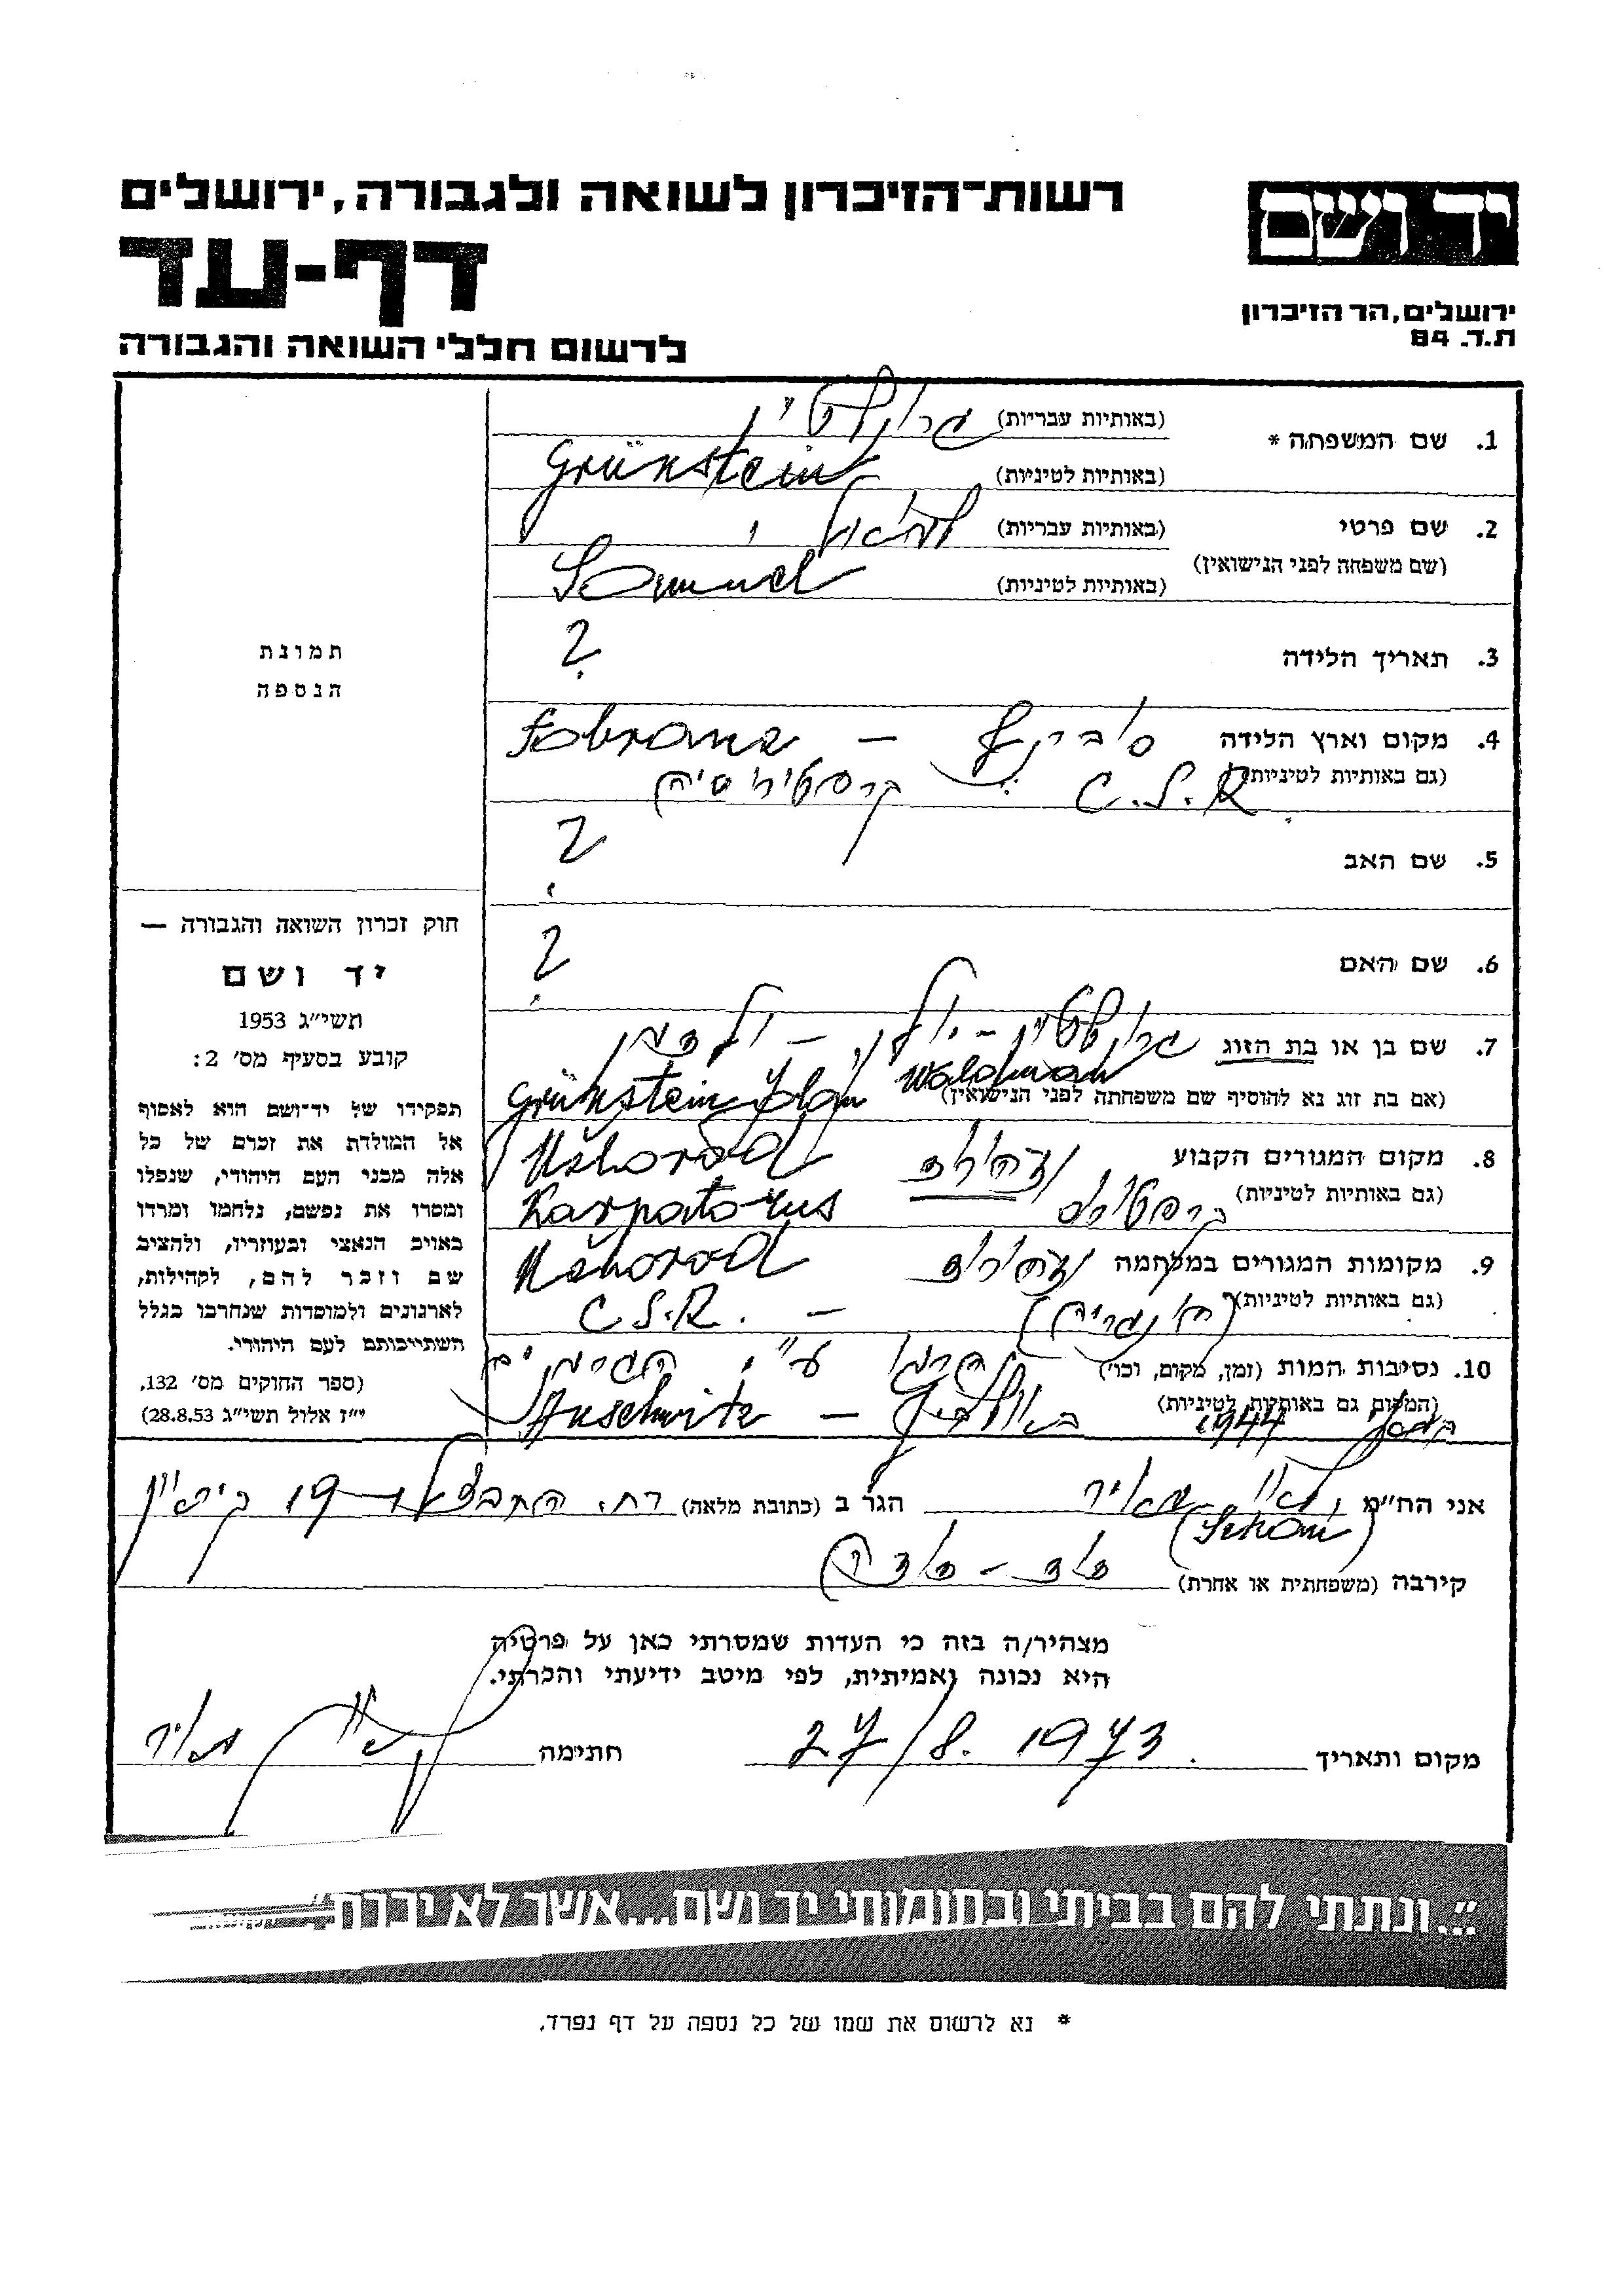 רשות-הזיכרון לשואה ולגבורה, ירושלים
יד ושם
דף-עד
ירושלים, הר הזיכרון
ת.ד. 84
לרשום חללי השואה והגבורה
1. שם המשפחה * (באותיות עבריות) גרינשטיין
(באותיות לטיניות) Grünstein
2. שם פרטי (באותיות עבריות) שמואל
(שם משפחה לפני הנישואין)
(באותיות לטיניות) Samuel
3. תאריך הלידה ?
4. מקום וארץ הלידה סוברנץ – Sobranz
(גם באותיות לטיניות) C.S.R.
5. שם האב ?
6. שם האם ?
7. שם בן או בת הזוג גרינשטיין – יולן – ולדמן
(אם בת זוג נא להוסיף שם משפחתה לפני הנישואין) Grünstein Jolan Waldman
8. מקום המגורים הקבוע אוזהורוד Užhorod
(גם באותיות לטיניות) Karpatorus
9. מקומות המגורים במלחמה אוזהורוד Užhorod
(גם באותיות לטיניות) (הונגריה) – C.S.R.
10. נסיבות המות (זמן, מקום, וכו') ע"י הגרמנים
(המקום גם באותיות לטיניות) 1944 באושביץ – Auschwitz
תמונת
הנספה
חוק זכרון השואה והגבורה —
יד ושם
תשי"ג 1953
קובע בסעיף מס' 2:
תפקידו של יד-ושם הוא לאסוף
אל המולדת את זכרם של כל
אלה מבני העם היהודי, שנפלו
ומסרו את נפשם, נלחמו ומרדו
באויב הנאצי ובעוזריו, ולהציב
שם וזכר להם, לקהילות,
לארגונים ולמוסדות שנחרבו בגלל
השתייכותם לעם היהודי.
(ספר החוקים מס' 132,
י"ז אלול תשי"ג 28.8.53)
אני הח"מ מאיר הגר ב (כתובת מלאה) רח. 19
(Schön)
קירבה (משפחתית או אחרת) דוד – דודה
מצהיר/ה בזה כי העדות שמסרתי כאן על פרטיה
היא נכונה ואמיתית, לפי מיטב ידיעתי והכרתי.
מקום ותאריך 27/8. 1973 חתימה מאיר
"...ונתתי להם בביתי ובחומותי יד ושם...אשר לא יכרת"
* נא לרשום את שמו של כל נספה על דף נפרד.